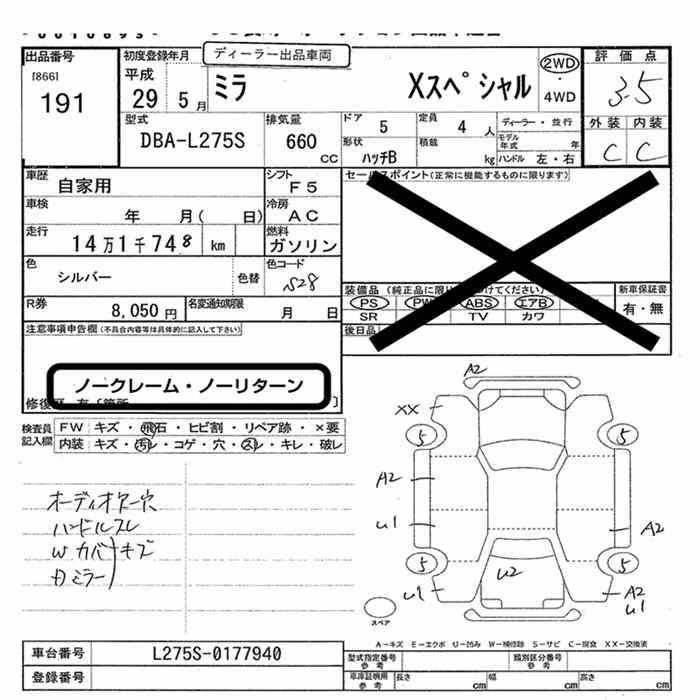 ディーラー出品車両
出品番号 初度登録年月 評価点
[866] 平成
191 29 5月 ミラ Xスペシャル 2WD ・ 4WD 3.5
型式 排気量 ドア 定員 ディーラー・並行 外装 内装
DBA-L275S 660 CC 5 4人 モデル年式 年 C C
形状 積載
ハッチB kg ハンドル 左・右
車歴 シフト セールスポイント(正常に機能するものに限ります)
自家用 F5
車検 冷房
年 月( 日) AC
走行 燃料
14万1千748 km ガソリン
色 色コード
シルバー 色替 S28
装備品 (純正品に限り 付けてください) 新車保証書
PS PW ABS エアB 有・無
SR TV カワ
R券 名変通知期限 後日品
8,050円 月 日
注意事項申告欄(不具合内容等は具体的に記入して下さい)
ノークレーム・ノーリターン
修復歴 有 [箇所 ]
検査員記入欄
FW キズ・飛石・ヒビ割・リペア跡・×要
内装 キズ・汚レ・コゲ・穴・スレ・キレ・破レ
オーディオアナ穴
ハンドルスレ
Wカバーキズ
Dミラー
A2
XX
5 5
A2
U1 A2
5 5
U2
U1 A2
U1
スペア
A-キズ E-エクボ U-凹み W-補修跡 S-サビ C-腐食 XX-交換済
車台番号 L275S-0177940 型式指定番号 参考 類別区分番号 参考
登録番号 車庫証明用 参考 長さ cm 幅 cm 高さ cm